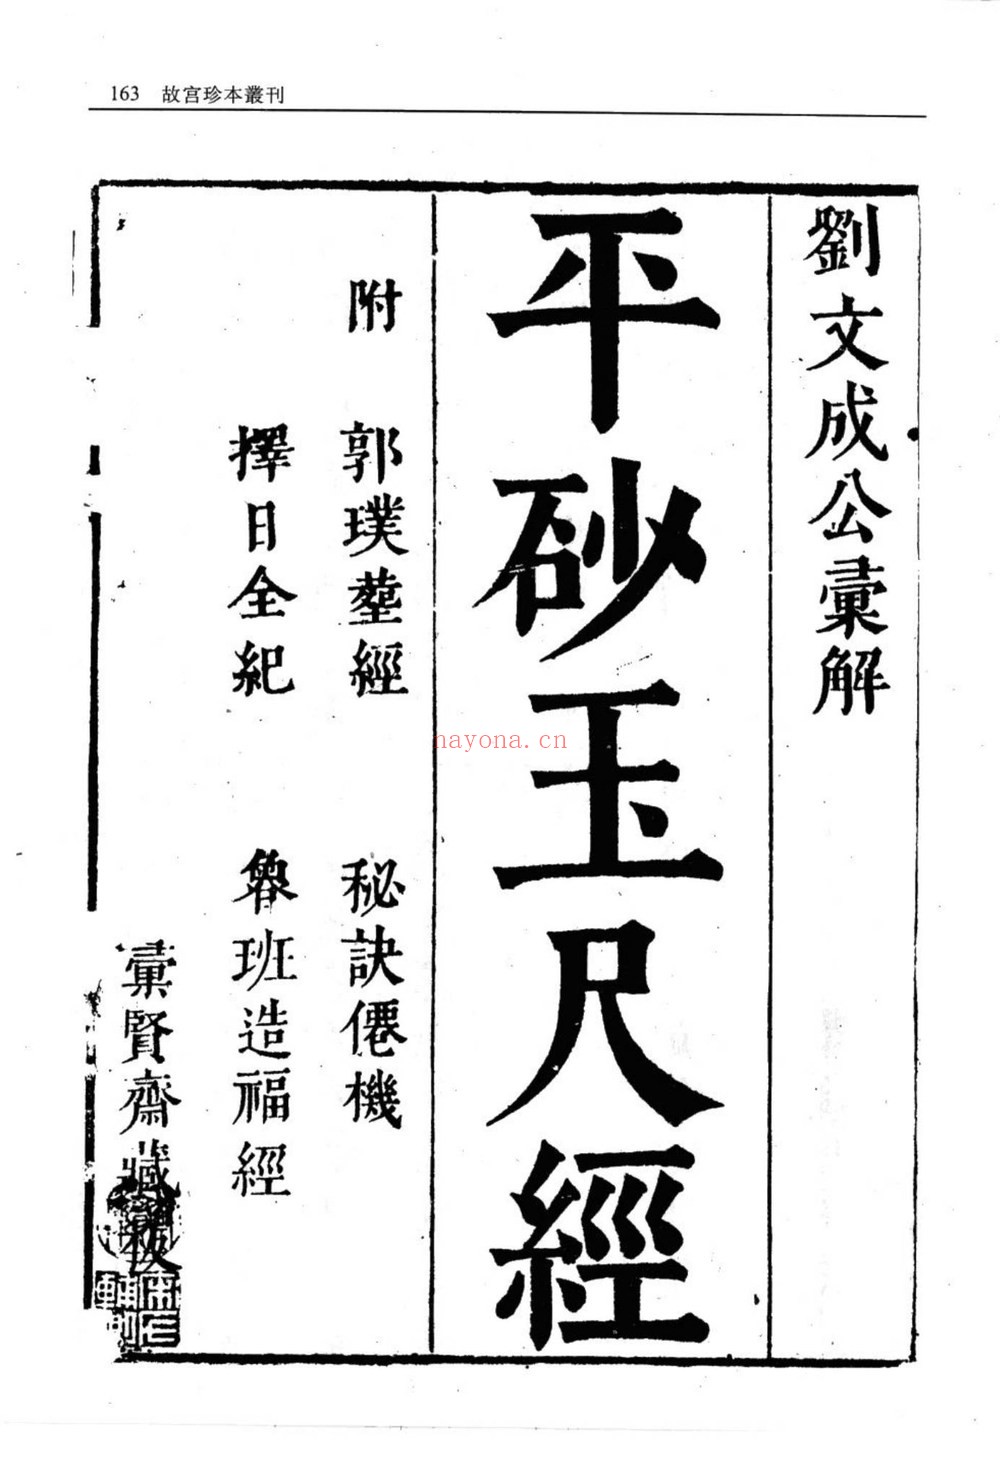 163 故宫珍本叢刊
劉文成公彙解
平砂玉尺經
附 郭璞塟經 秘訣僊機
擇日全紀 魯班造福經
彙賢齋藏板
nayona.cn